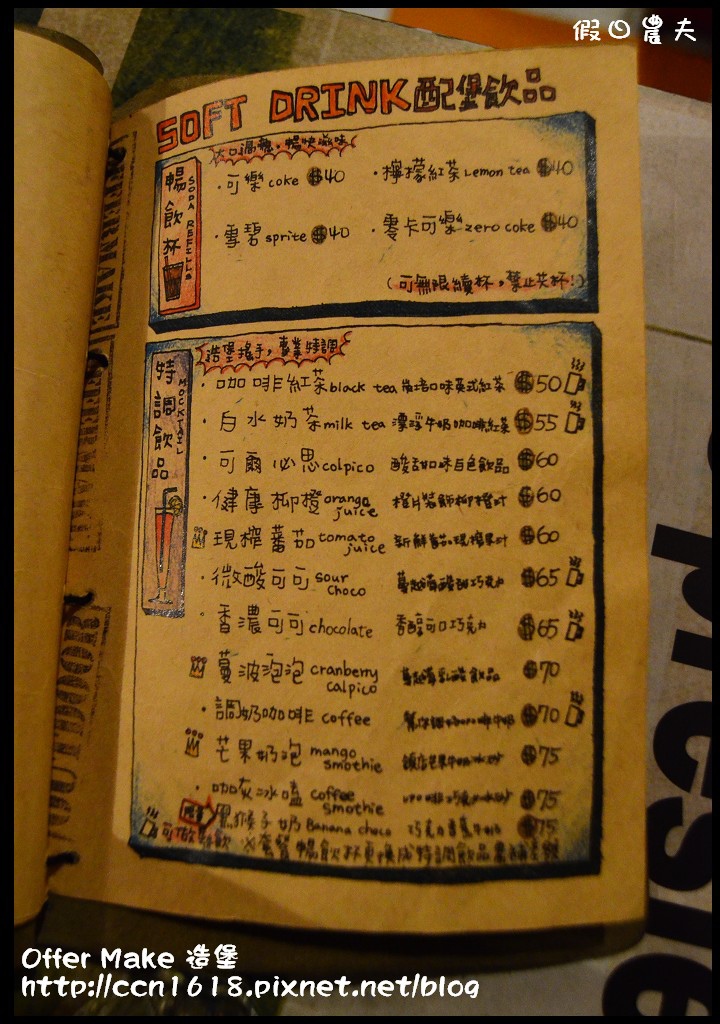 假日農夫
SOFT DRINK 配堡飲品
大口過癮，暢快滋味
暢飲杯 SODA REFILLS
・可樂 coke $40 ・檸檬紅茶 Lemon tea $40
・雪碧 sprite $40 ・零卡可樂 zero coke $40
(可無限續杯，禁止共杯!)
造堡搖手，專業特調
特調飲品 MOCKTAIL
・咖啡紅茶 black tea 英式紅茶 $50
・白水奶茶 milk tea 漂浮牛奶咖啡紅茶 $55
・可爾必思 colpico 酸甜口味白色飲品 $60
・健康柳橙 orange juice 橙片裝飾柳橙汁 $60
現榨蕃茄 tomato juice 新鮮蕃茄現榨果汁 $60
・微酸可可 sour choco 蔓越莓酸甜巧克力 $65
・香濃可可 chocolate 香醇可口巧克力 $65
蔓波泡泡 cranberry calpico 蔓越莓乳酸飲品 $70
・調奶咖啡 coffee $70
芒果奶泡 mango smothie $75
・咖灰冰嗑 coffee smothie $75
黑猴子奶 Banana choco 巧克力香蕉牛奶 $75
可做熱飲 ※套餐暢飲杯更換成特調飲品需補差額
OFFERMAKE
Offer Make 造堡
http://ccn1618.pixnet.net/blog
presie